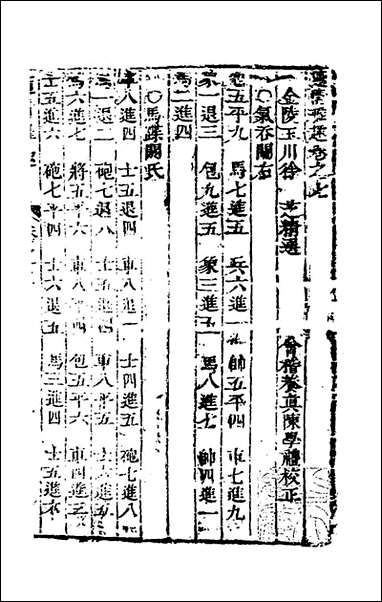 適情雅趣卷之七
金陵玉川徐芝精選 會稽養真陳學禮校正
○氣吞關右
五平九 馬七進五 兵六進一 帥五平四 車七進九
一退三 包九進五 象三進五 馬八進七 帥四進一
馬二進四
○馬蹀閼氏
車八進四 士五退四 車八進一 士四進五 砲七進八
一退二 砲七退八 士五退四 車八平五 士六進五
馬六進七 將五平六 車八平四 包五平六 車四進三
士五進六 砲七平四 士六退五 馬三進四 士五進六